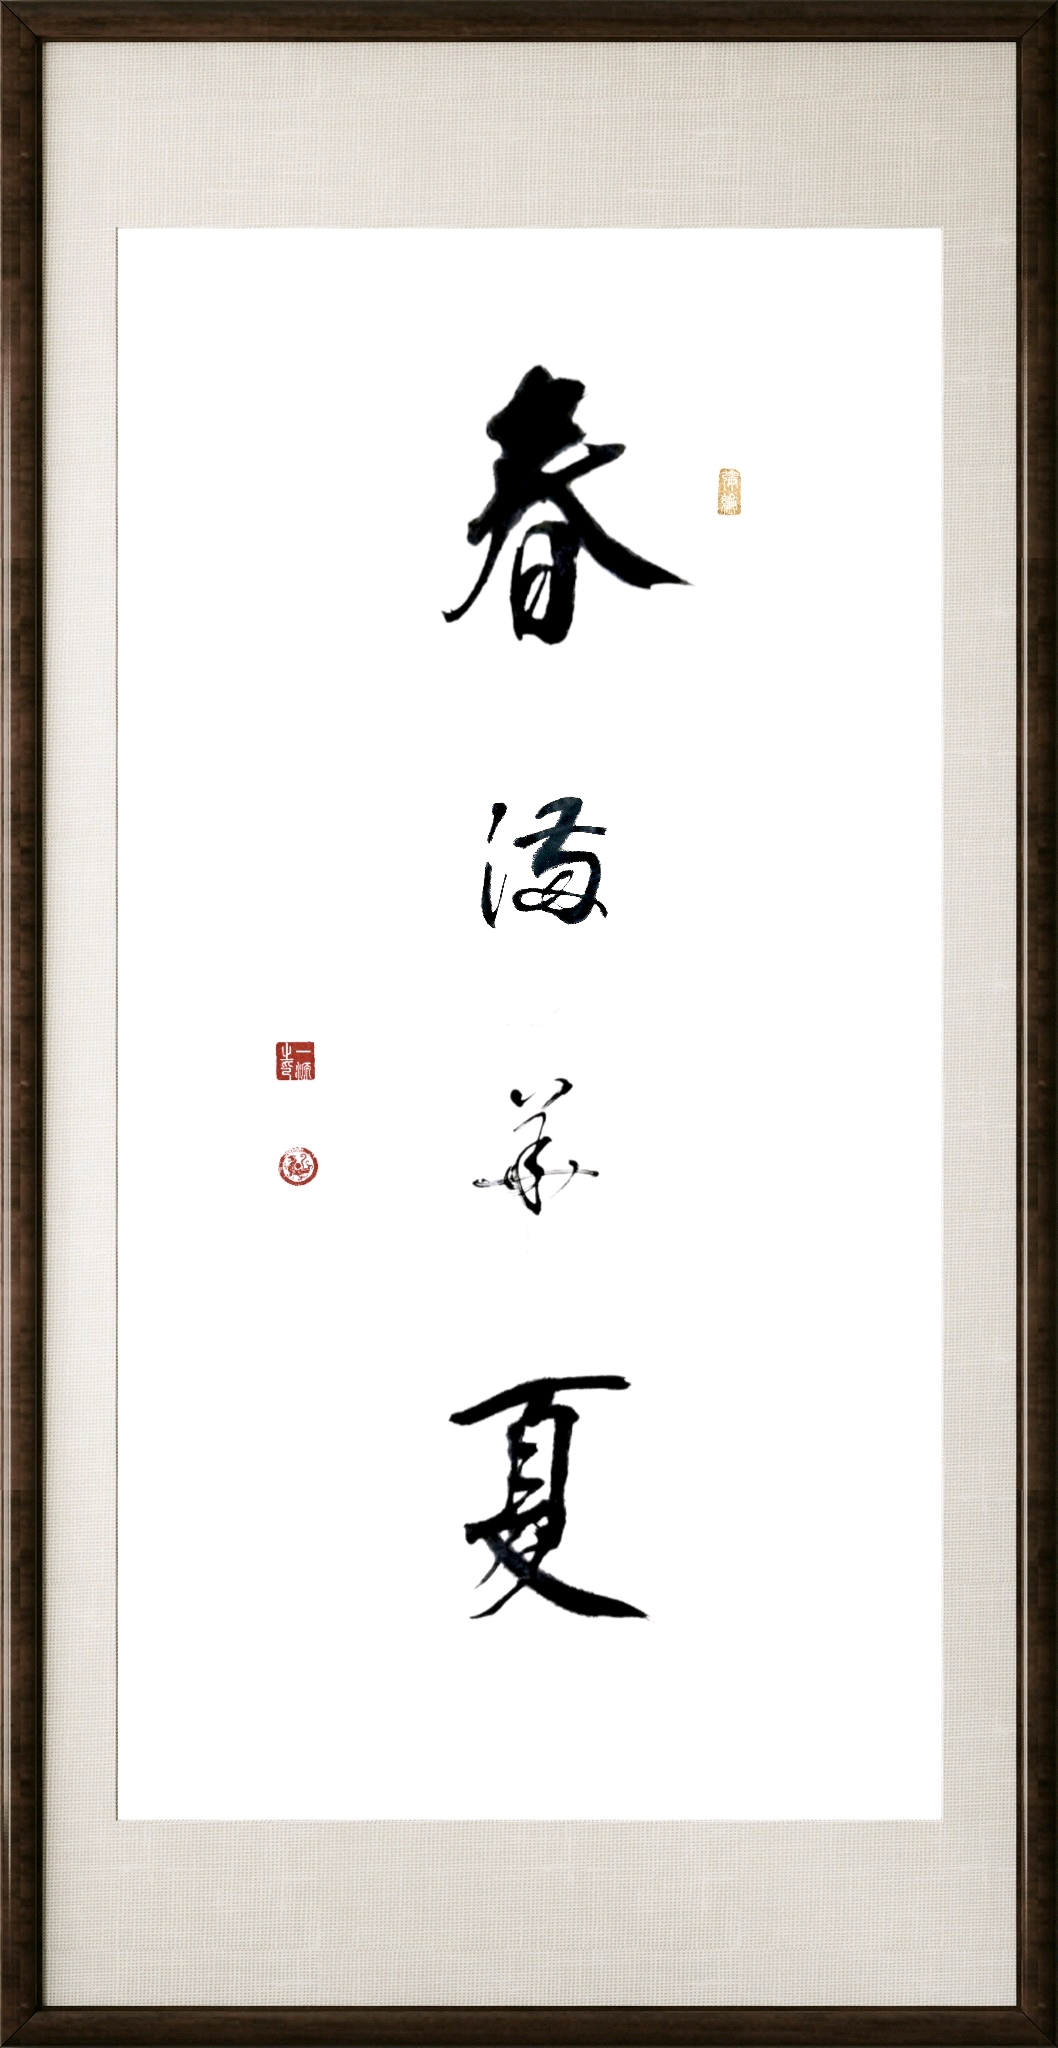 春满华夏